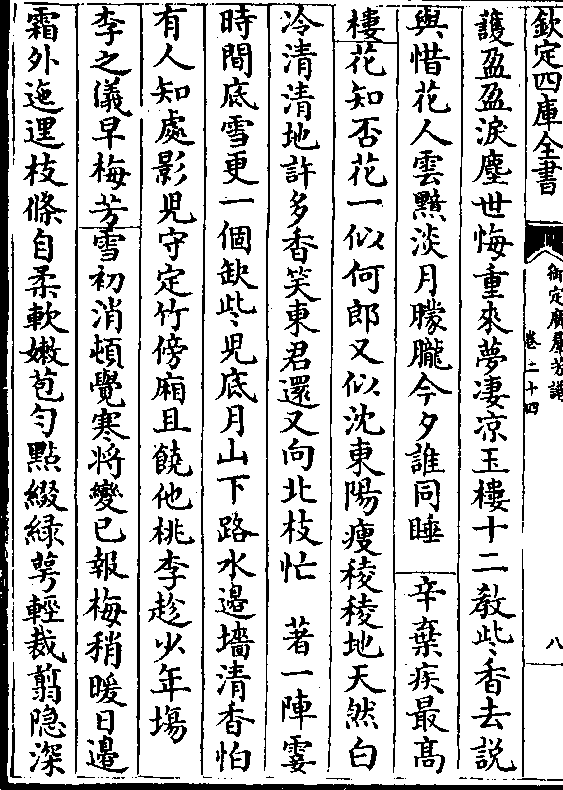 欽定四庫全書
御定廣羣芳譜
卷二十四
八
護盈盈淚塵世悔重來夢凄凉玉樓十二教些香去説
與惜花人雲黯淡月朦朧今夕誰同睡 辛棄疾最高
樓花知否花一似何郎又似沈東陽瘦稜稜地天然白
冷清清地許多香笑東君還又向北枝忙 著一陣霎
時間底雪更一個缺些兒底月山下路水邉墻清香怕
有人知處影兒守定竹傍廂且饒他桃李趁少年塲
李之儀早梅芳雪初消頓覺寒將變已報梅稍暖日邉
霜外迤逞枝條自柔軟嫩苞勻點綴緑萼輕裁翦隐深